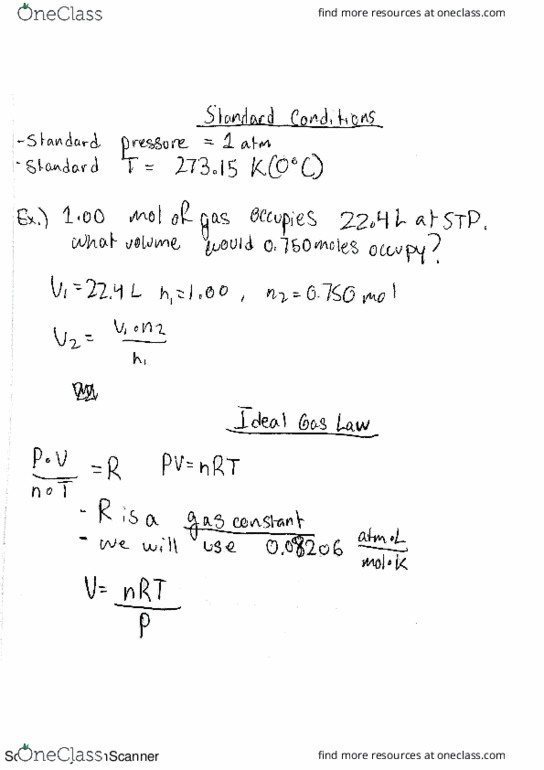 OneClass find more resources at oneclass.com
Standard Conditions
-Standard pressure = 1 atm
-Standard T = 273.15 K(0°C)
Ex.) 1.00 mol of gas occupies 22.4L at STP.
what volume would 0.750 moles occupy?
V₁=22.4 L n₁=1.00, n₂=0.750 mol
V₂ = V₁•n₂
n₁
Ideal Gas Law
P•V
n•T = R PV=nRT
- R is a gas constant
- we will use 0.08206 atm•L
mol•K
V= nRT
P
OneClass Scanner find more resources at oneclass.com